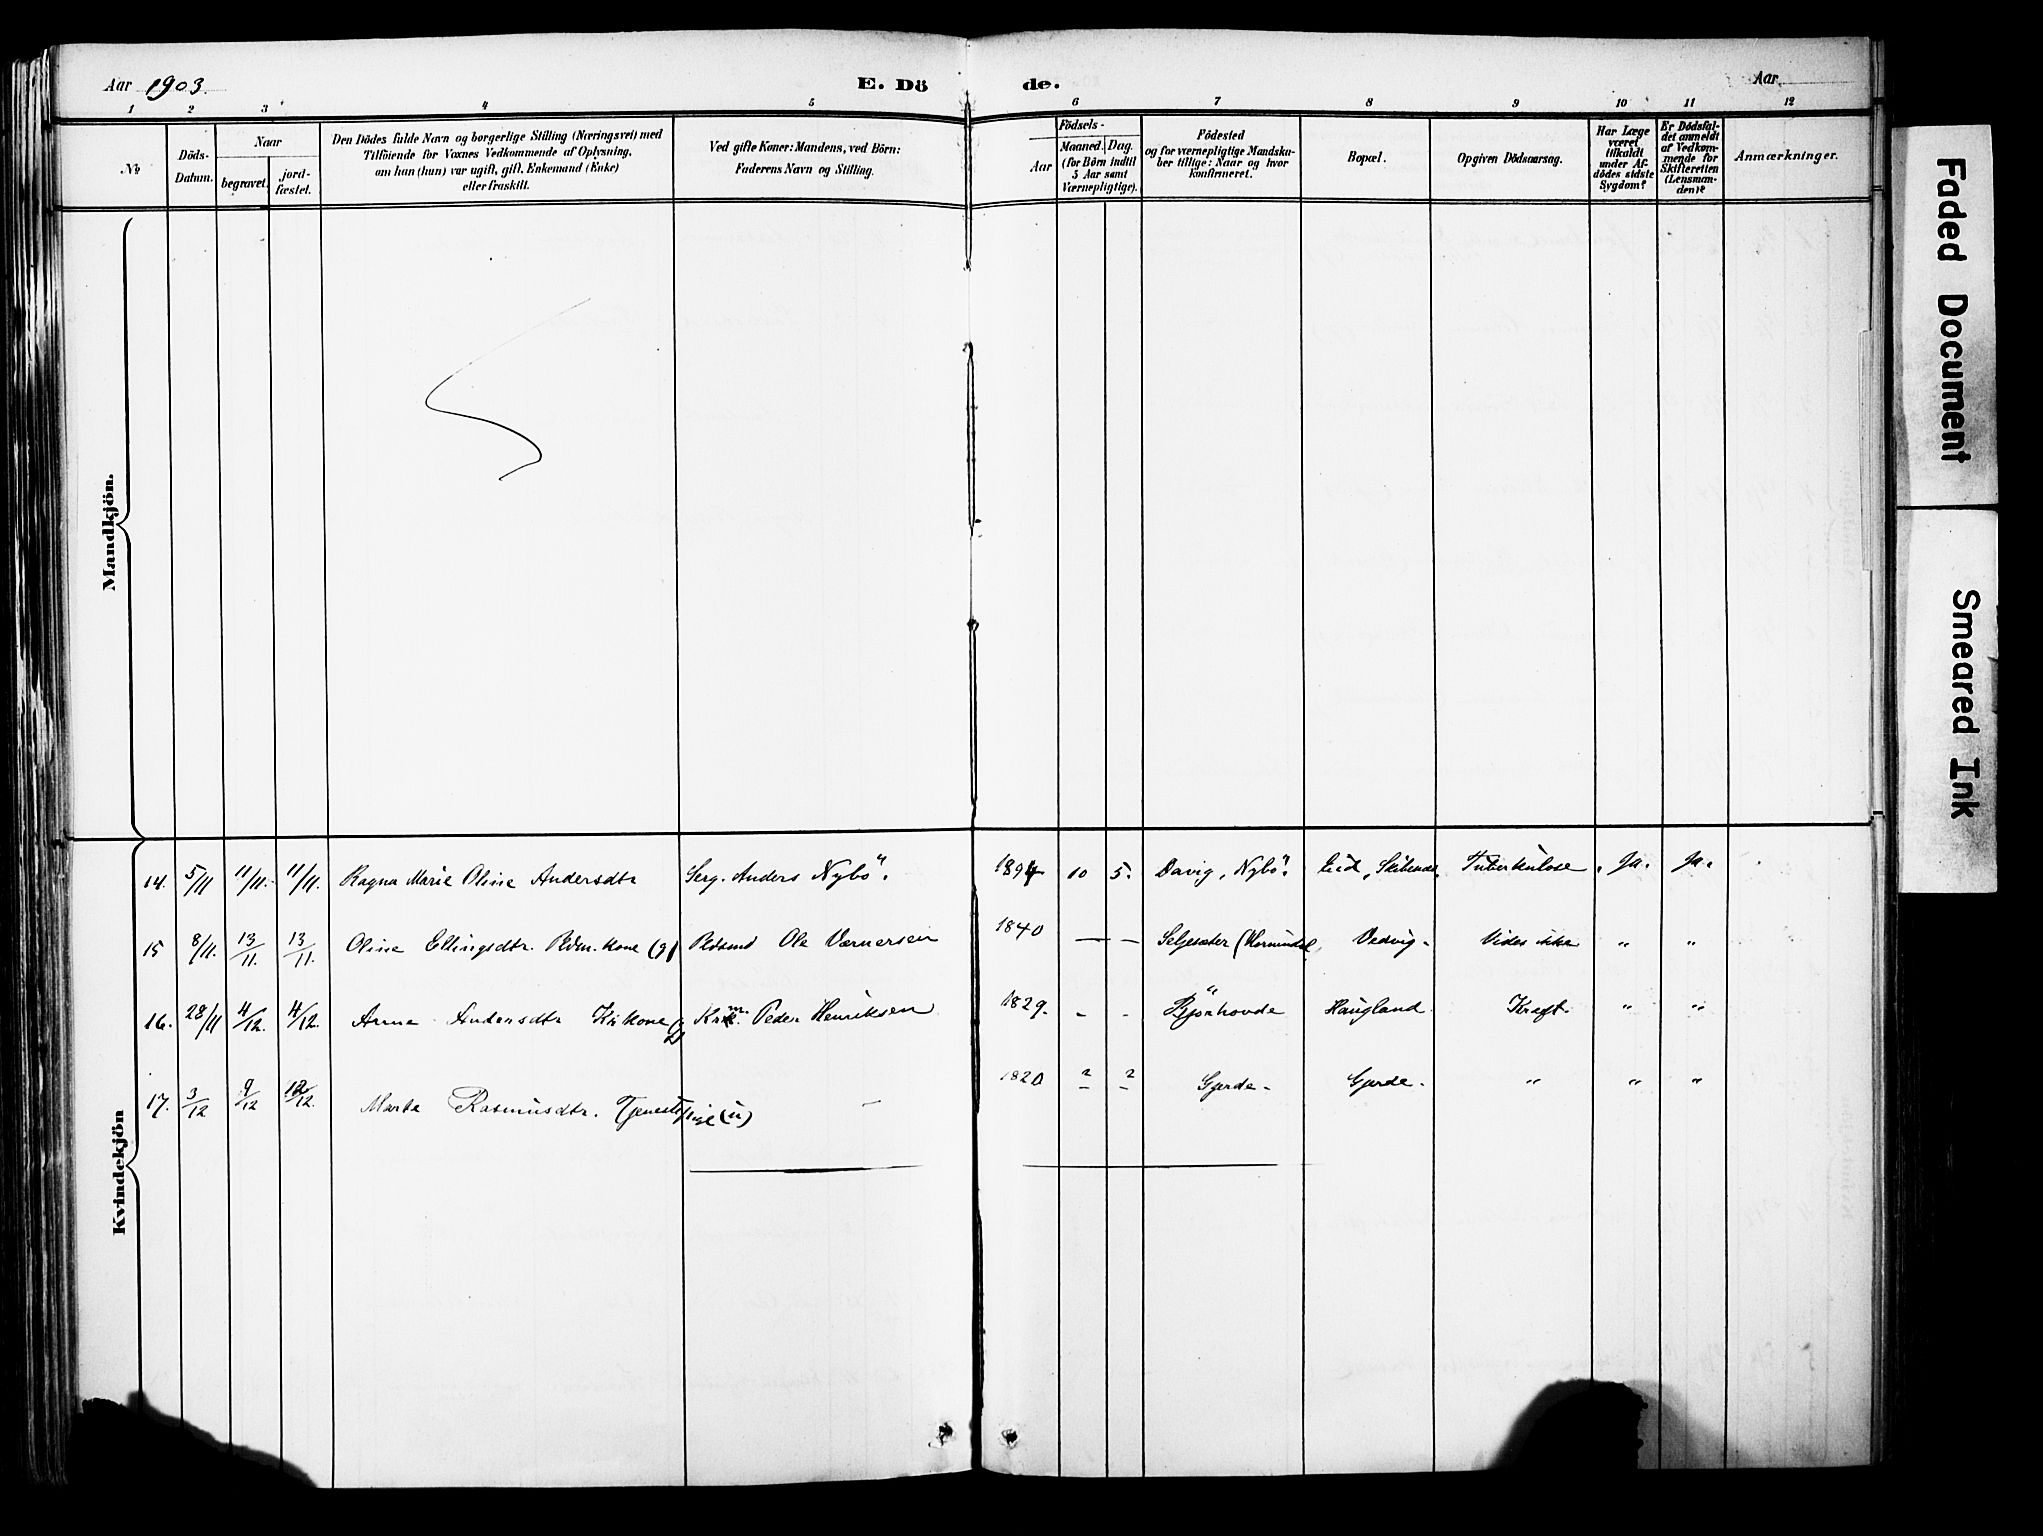 Aar 1903.
E. Dö de.
Aar
1 2 3 4 5 6 7 8 9 10 11 12
№
Döds-
Datum.
Naar
begravet.
jord-
fæstet.
Den Dödes fulde Navn og borgerlige Stilling (Næringsvei) med
Tilföiende for Voxnes Vedkommende af Oplysning,
om han (hun) var ugift, gift, Enkemand (Enke)
eller fraskilt.
Ved gifte Koner: Mandens, ved Börn:
Faderens Navn og Stilling.
Födsels-
Aar
Maaned. Dag.
(for Börn indtil
5 Aar samt
Værnepligtige).
Födested
og for værnepligtige Mandska-
ber tillige: Naar og hvor
konfirmeret.
Bopæl.
Opgiven Dödsaarsag.
Har Læge
været
tilkaldt
under Af-
dödes sidste
Sygdom?
Er Dödsfal-
det anmeldt
af Vedkom-
mende for
Skifteretten
(Lensman-
den)?
Anmærkninger.
Mandkjön.
Kvindekjön
14. 5/11 11/11. 11/11. Ragna Marie Oline Andersdtr Serg. Anders Nybö. 1894 10 5. Davig, Nybö. Eid, Tuberkulose Ja. Ja.
15 8/11. 13/11. 13/11. Oline Ellingsdtr. kone (g) Ole Værnersen 1840 — — Seljesæter (Hornindal Vedvig - Vides ikke " "
16. 28/11 4/12. 4/12. Anna Andersdtr Kone (g) Peder Henriksen 1829. - - Bjørhovde Haugland. Kræft. " "
17. 3/12 9/12 12. Marta Rasmusdtr. Tjenestepige (u) — 1820 ? ? Gjerde - Gjerde - " " "
Faded Document
Smeared Ink